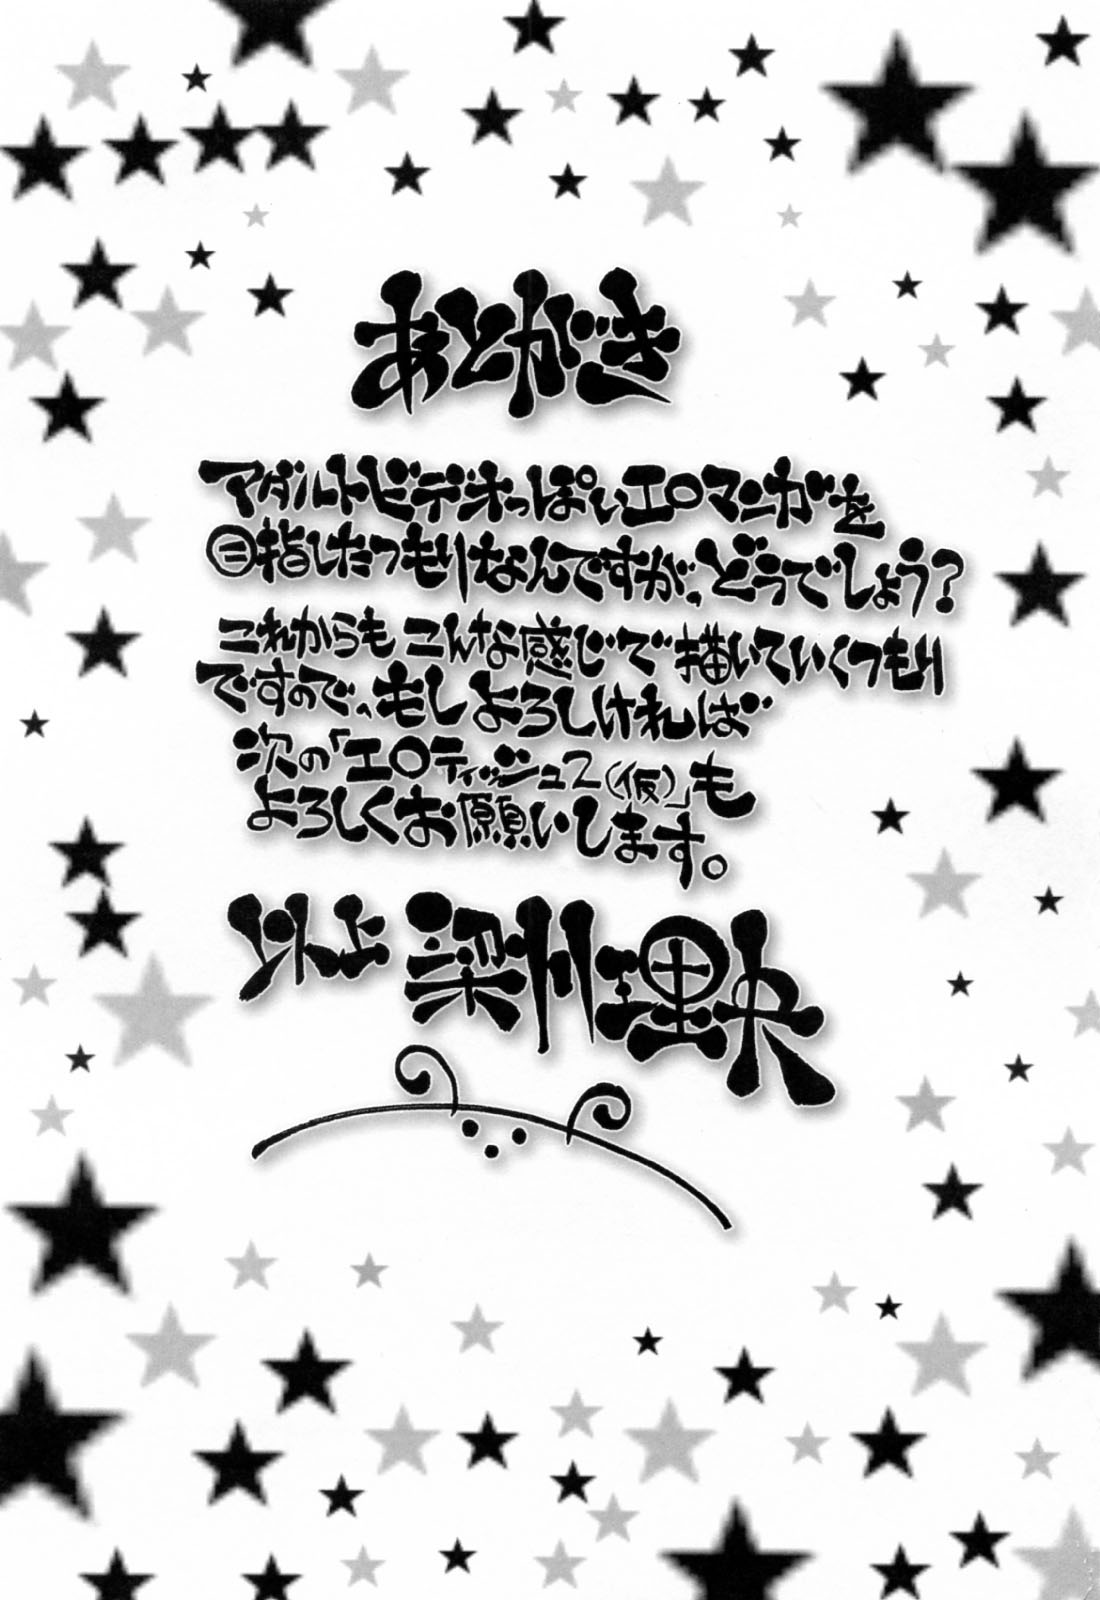 あとがき
アダルトビデオっぽいエロマンガを
目指したつもりなんですが、どうでしょう?
これからもこんな感じで描いていくつもり
ですので、もしよろしければ
次の「エロティッシュ2(仮)」も
よろしくお願いします。
以上 梁川理央